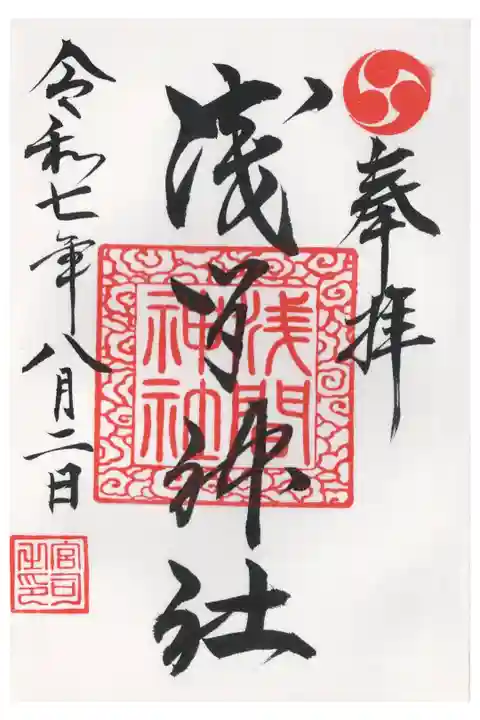 奉拝
浅间神社
浅間
神社
令和七年八月二日
宮司
之印